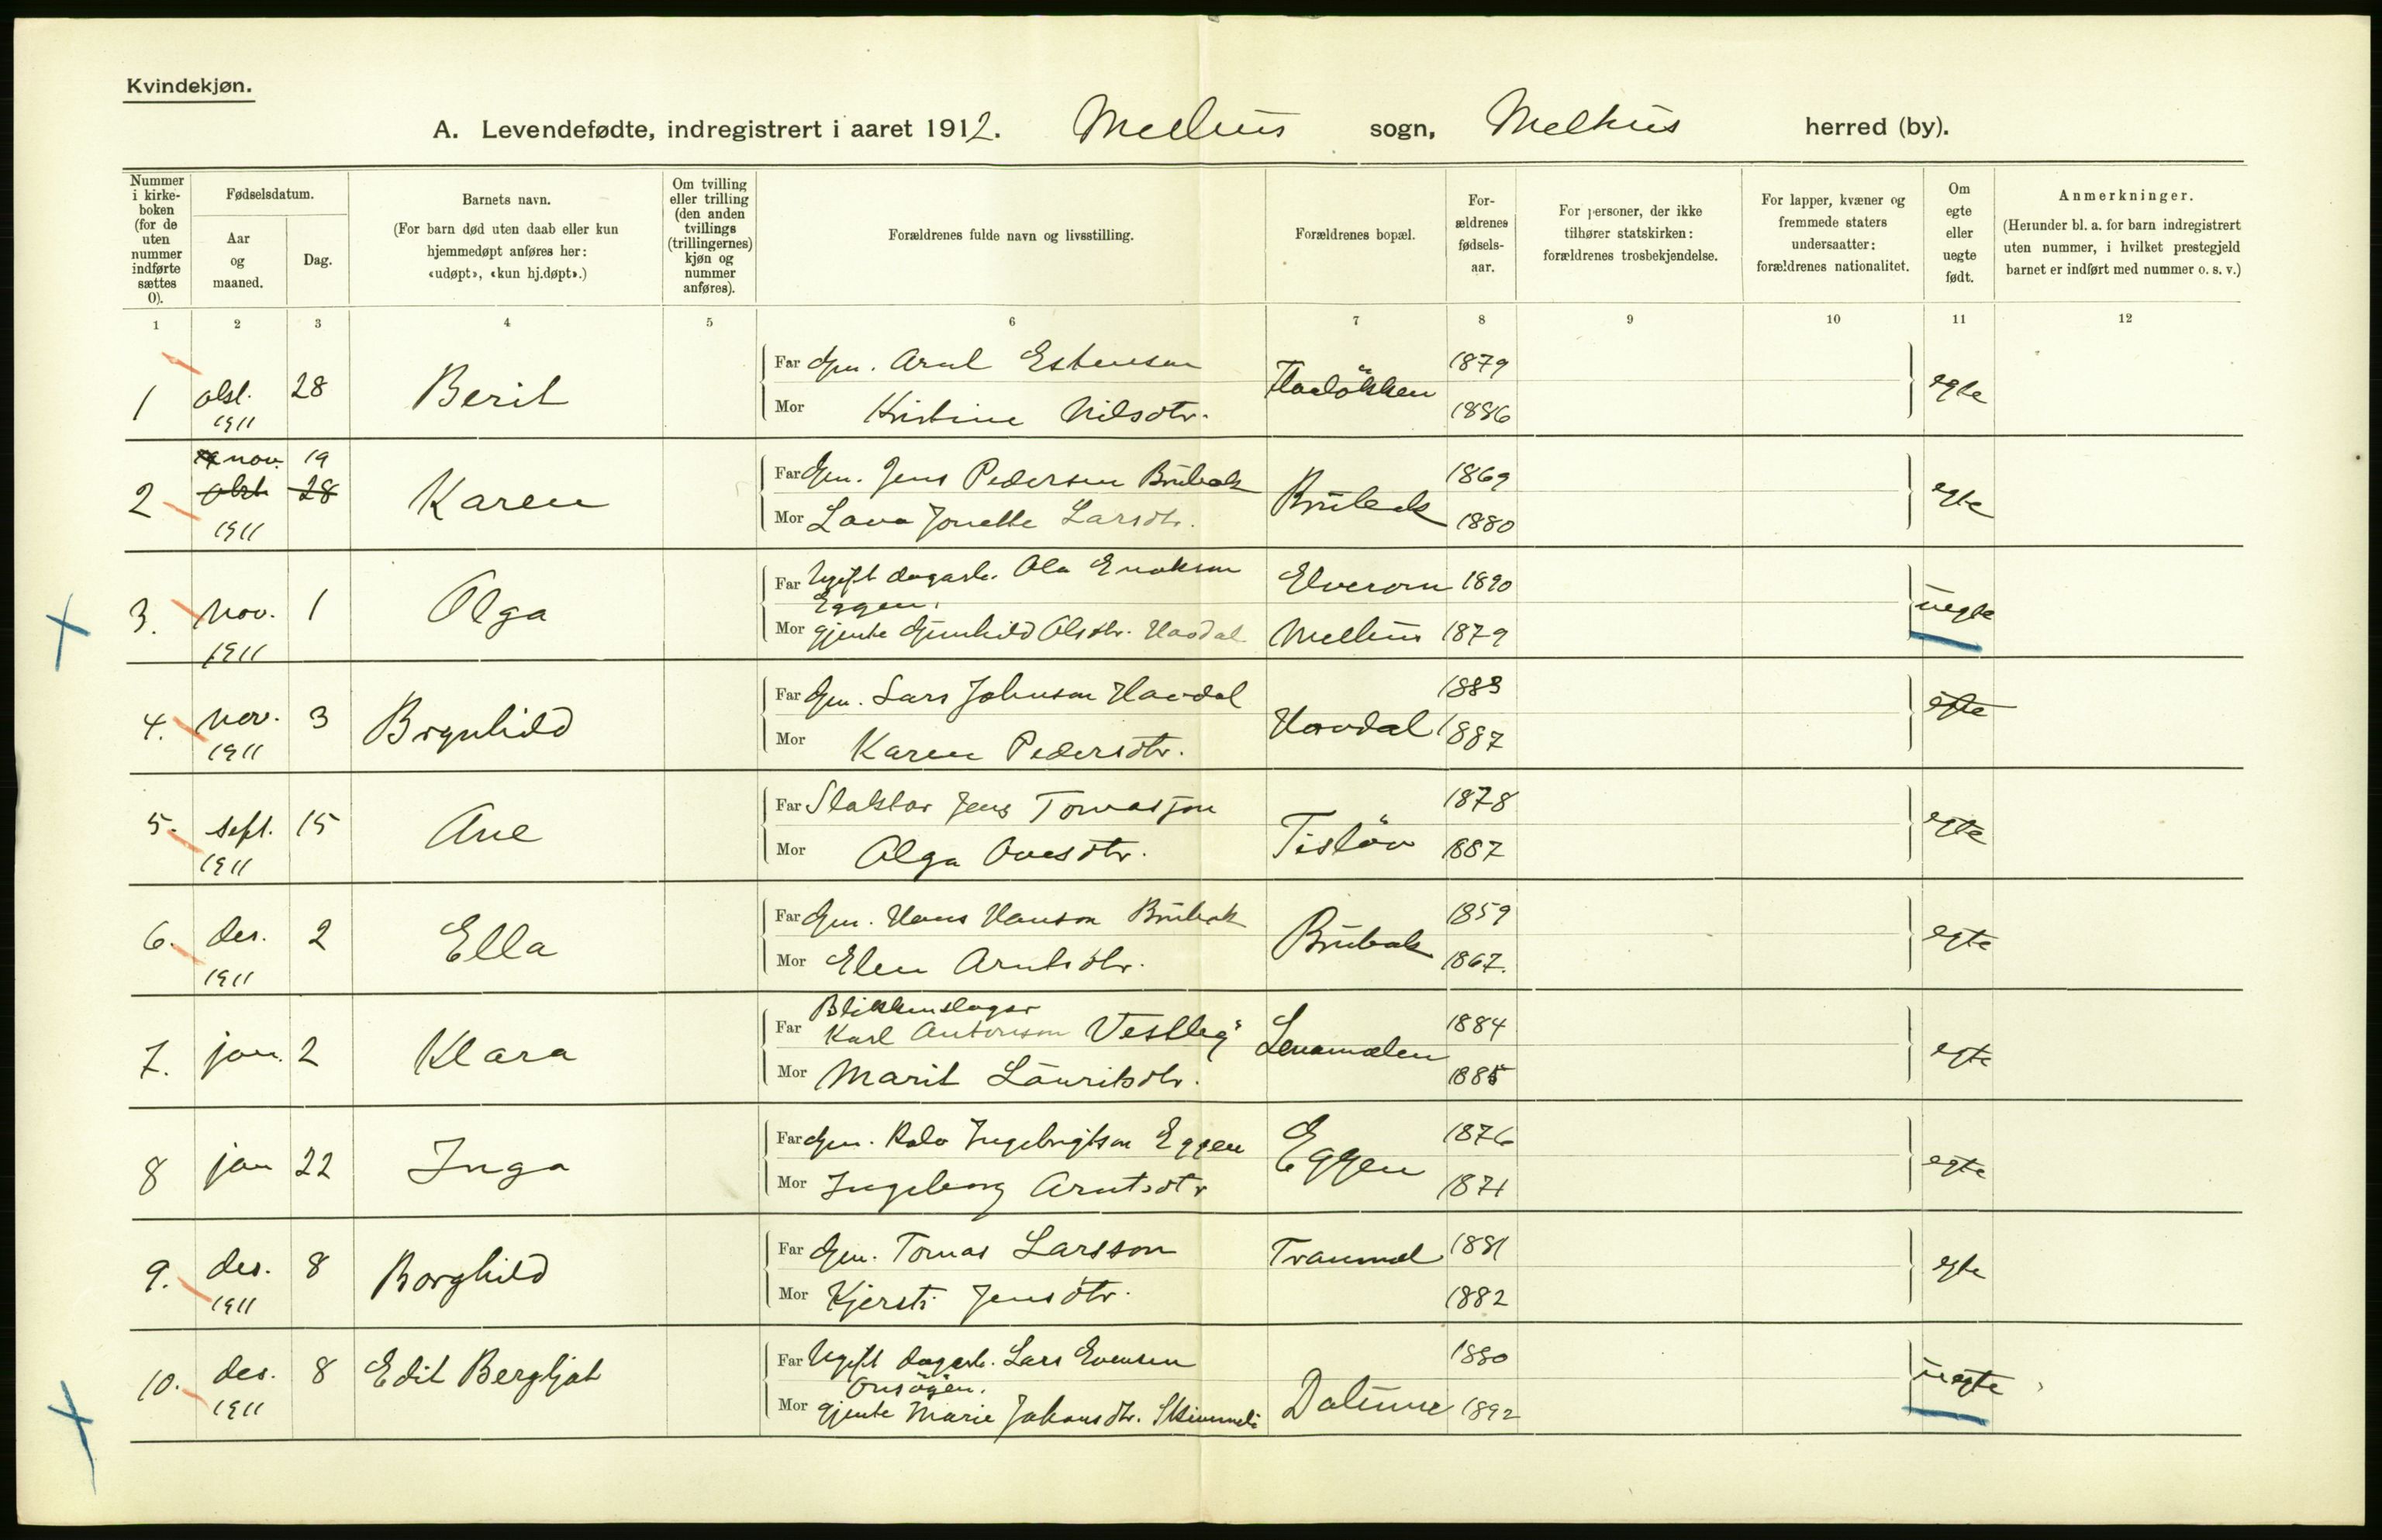 Kvindekjøn.
A. Levendefødte, indregistrert i aaret 1912. Melhus sogn, Melhus herred (by).
Nummer i kirke-boken (for de uten nummer indførte sættes 0).
Fødselsdatum.
Aar og maaned.
Dag.
Barnets navn.
(For barn død uten daab eller kun hjemmedøpt anføres her: «udøpt», «kun hj.døpt».)
Om tvilling eller trilling (den anden tvillings (trillingernes) kjøn og nummer anføres).
Forældrenes fulde navn og livsstilling.
Forældrenes bopæl.
For-ældrenes fødsels-aar.
For personer, der ikke tilhører statskirken: forældrenes trosbekjendelse.
For lapper, kvæner og fremmede staters undersaatter: forældrenes nationalitet.
Om egte eller uegte født.
Anmerkninger.
(Herunder bl. a. for barn indregistrert uten nummer, i hvilket prestegjeld barnet er indført med nummer o. s. v.)
1 2 3 4 5 6 7 8 9 10 11 12
1 1911 28 Berit
Far Gm. Estensen 1879
Mor Kristine Nilsdtr. 1886
egte
2 nov. 19 1911 28 Karen
Far Gm. Jens Pedersen Brubak Brubak 1869
Mor Jonette Larsdtr. 1880
egte
3. nov. 1 1911 Olga
Far Ugift dagarb. Ola Enoksen Eggen. 1890
Mor gjente Gunhild Olsdtr. Havdal Melhus 1879
uegte
4. nov. 3 1911 Brynhild
Far Gm. Lars Johnsen Havdal Havdal 1883
Mor Karen Pedersdtr. 1887
egte
5. sept. 15 1911 Ane
Far Jens Tomasson 1878
Mor Olga 1887
egte
6. des. 2 1911 Ella
Far Gm. Hans Hanson Brubak Brubak 1859
Mor Elen Arntsdtr. 1867.
egte
7. jan. 2 Klara
Far Blikkenslager Karl Antonson 1884
Mor Marit Lauritsdtr. 1885
egte
8 jan 22 Inga
Far Gm. Ingebrigtson Eggen Eggen 1876
Mor Ingeborg Arntsdtr 1871
egte
9. des. 8 1911 Borghild
Far Gm. Tomas Larsson Tranmæl 1881
Mor Kjersti Jensdtr. 1882
egte
10. des. 8 1911 Edit Bergljot
Far Ugift dagarb. Lars Evensen 1880
Mor gjente Marie Johansdtr. 1892
uegte